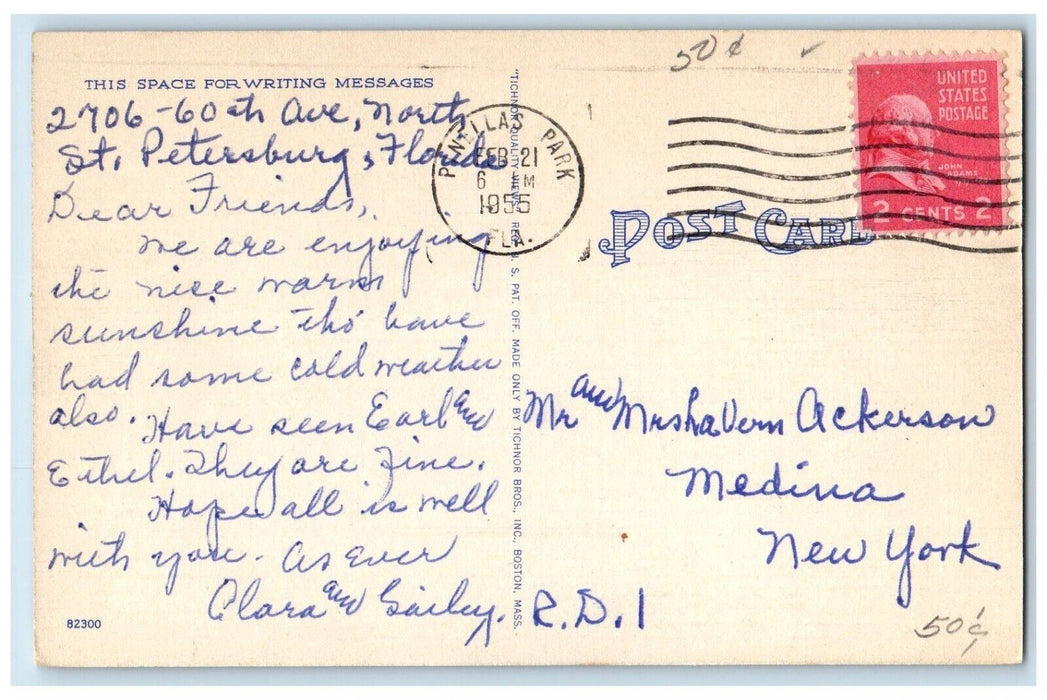 THIS SPACE FOR WRITING MESSAGES
2706-60th Ave, North
St. Petersburg, Florida
Dear Friends,
We are enjoying
the nice warm
sunshine tho' have
had some cold weather
also. Have seen Earl and
Ethel. They are fine.
Hope all is well
with you. As Ever
Clara and
82300
"TICHNOR QUALITY VIEWS" REG. U. S. PAT. OFF. MADE ONLY BY TICHNOR BROS., INC., BOSTON, MASS.
PINELLAS PARK
FEB 21
6 M
1955
FLA.
50¢
UNITED
STATES
POSTAGE
JOHN
ADAMS
2 CENTS 2
POST CARD
Mr and Mrs LaVern Ackerson
Medina
New York
R.D.1
50¢